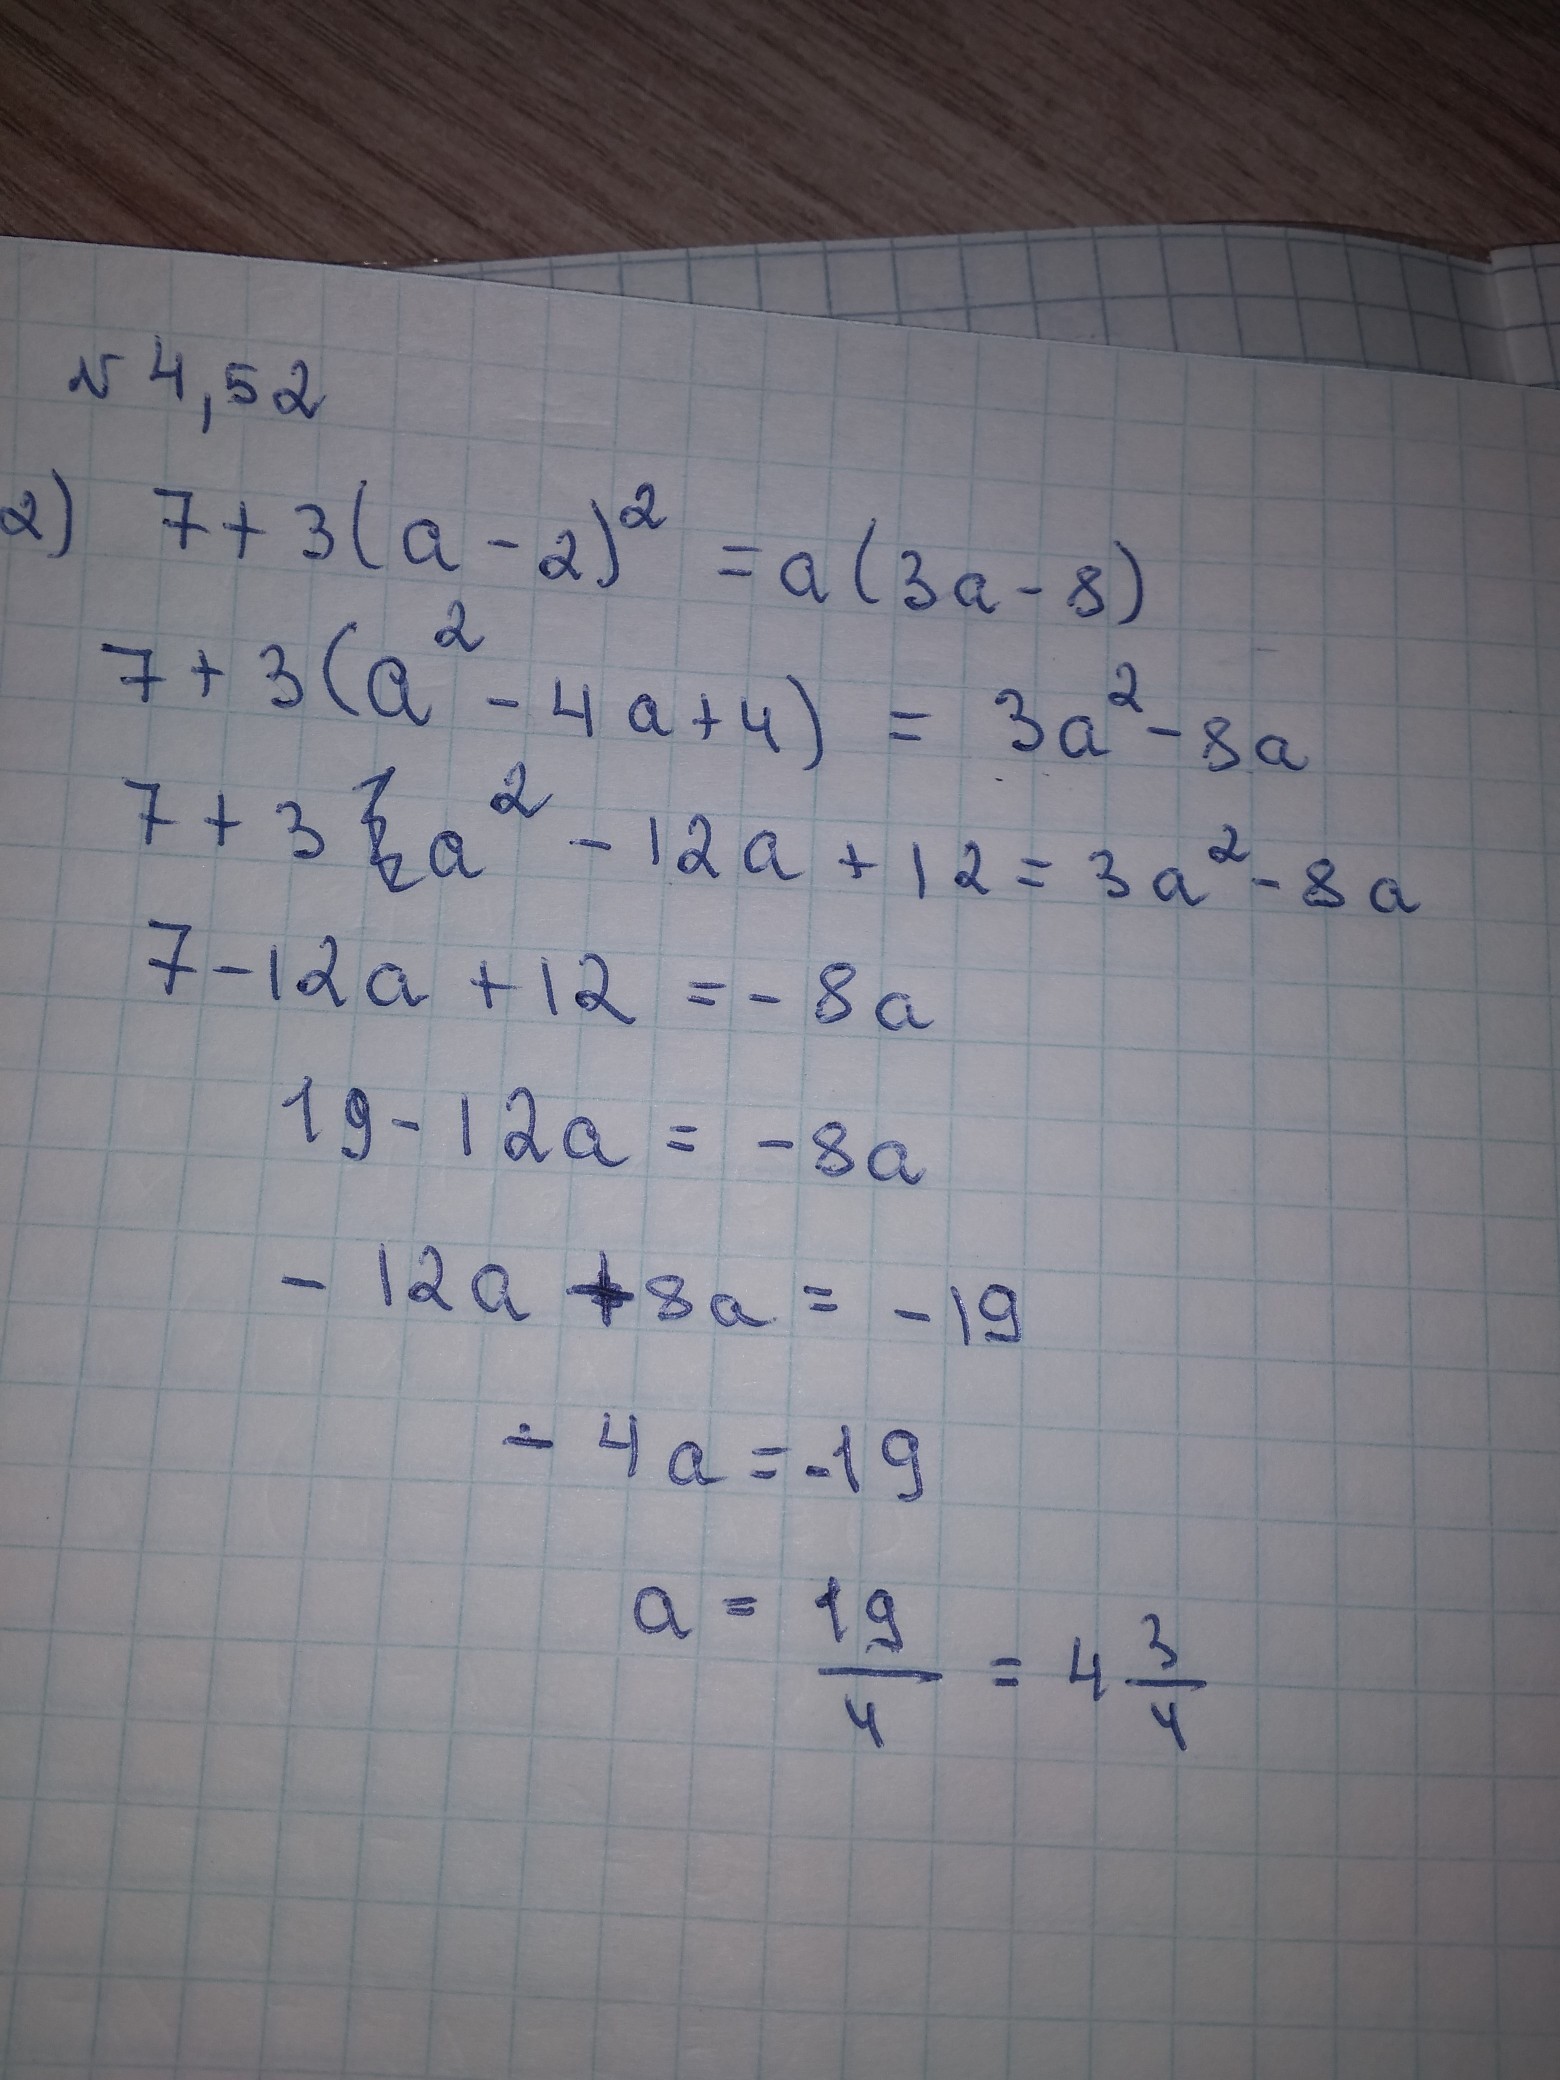 № 4,52
2) 7+3(a-2)² = a(3a-8)
7+3(a²-4a+4) = 3a²-8a
7+3a²-12a+12=3a²-8a
7-12a+12=-8a
19-12a=-8a
-12a+8a=-19
-4a=-19
a = 19/4 = 4 3/4